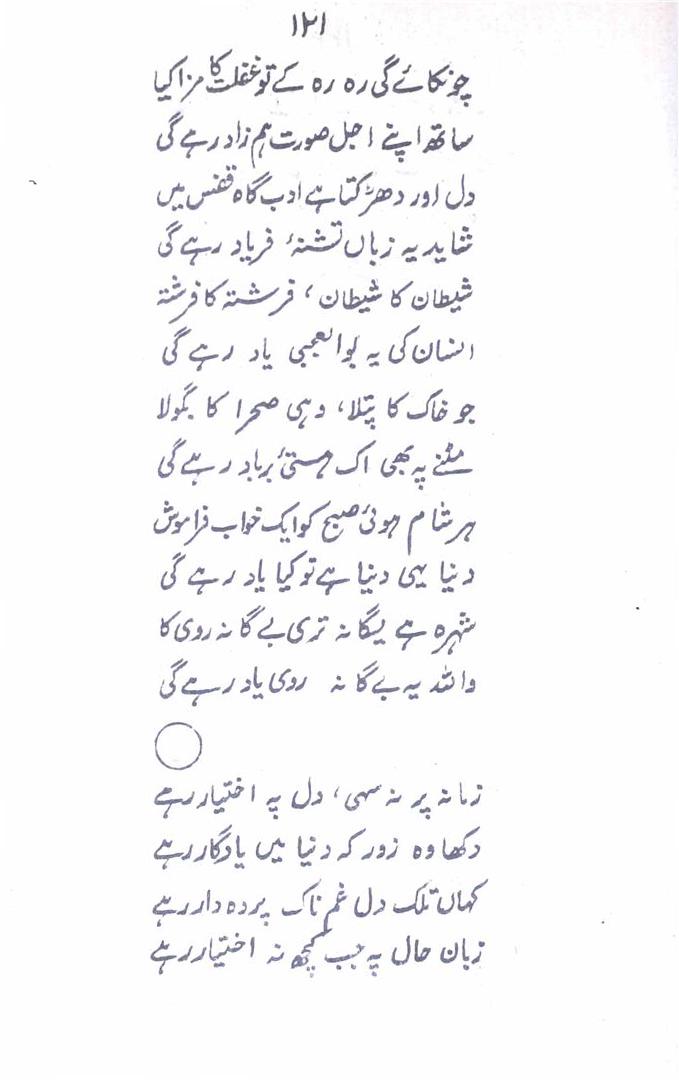 ۱۲۱
چونکائے گی رہ رہ کے تو غفلت کا مزا کیا
ساتھ اپنے اجل صورت ہم زاد رہے گی
دل اور دھڑکتا ہے ادب گاہ قفس میں
شاید یہ زباں تشنۂ فریاد رہے گی
شیطان کا شیطان، فرشتہ کا فرشتہ
انسان کی یہ بوالعجبی یاد رہے گی
جو خاک کا پتلا، وہی صحرا کا بگولا
مٹنے پہ بھی اک ہستیٔ برباد رہے گی
ہر شام ہوئی صبح کو ایک خواب فراموش
دنیا یہی دنیا ہے تو کیا یاد رہے گی
شہرہ ہے یگانہ تری بے گانہ روی کا
واللہ یہ بے گانہ روی یاد رہے گی
زمانہ پر نہ سہی، دل پہ اختیار رہے
دکھا وہ زور کہ دنیا میں یادگار رہے
کہاں تلک دل غم ناک پردہ دار رہے
زبان حال پہ جب کچھ نہ اختیار رہے